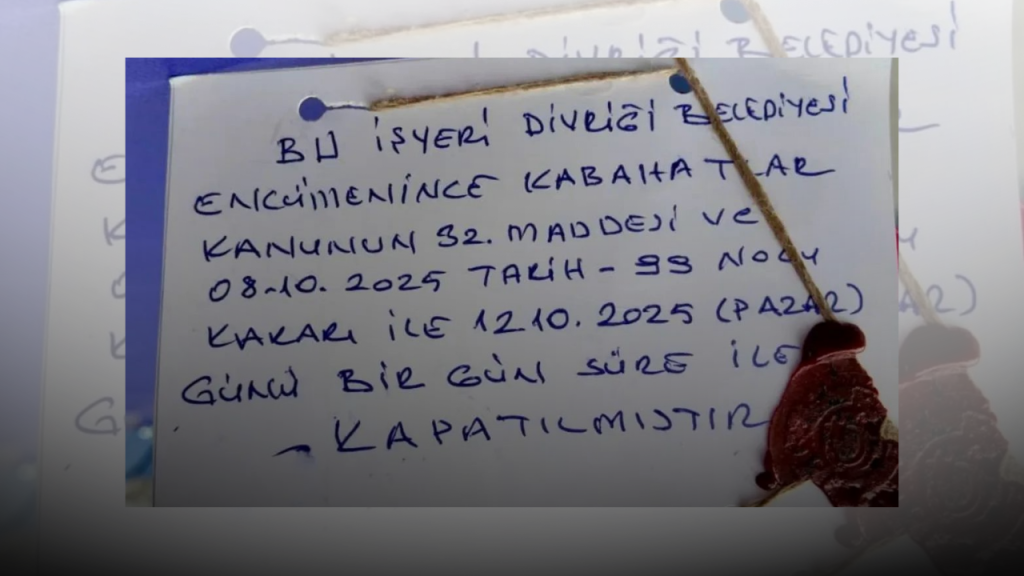 BU İŞYERİ DİVRİĞİ BELEDİYESİ
ENCÜMENİNCE KABAHATLAR
KANUNUN 32. MADDESİ VE
08.10.2025 TARİH - 99 NOLU
KARARI İLE 12.10.2025 (PAZAR)
GÜNÜ BİR GÜN SÜRE İLE
- KAPATILMIŞTIR